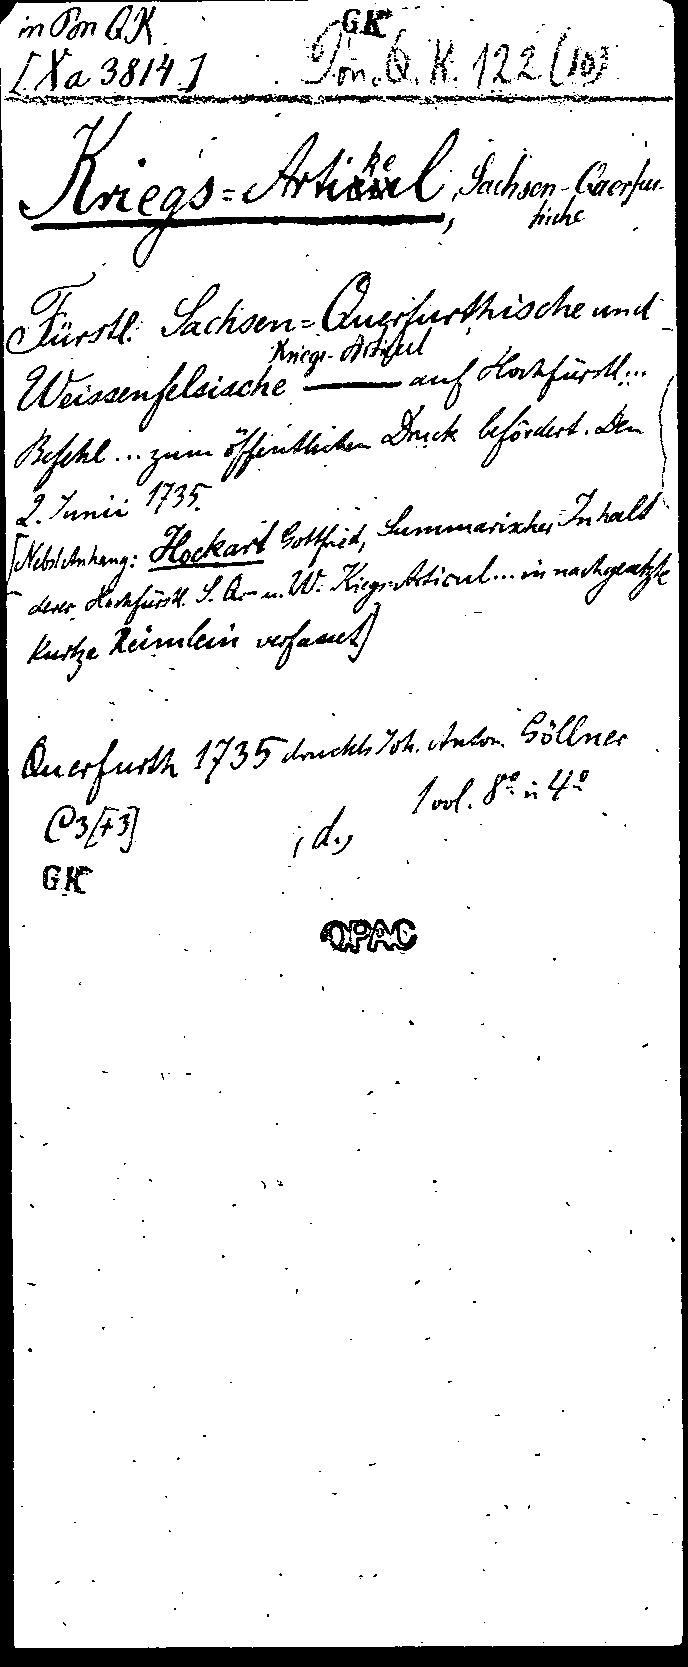 in Pon QK
GK
[Xa 3814] Pon. Q. K. 122 (10)
Kriegs=Artikel, Sachsen-Querfur-
tische
Fürstl. Sachsen=Querfurthische und
Kriegs-Articul
Weissenfelsische — auf Hochfürstl...
Befehl ... zum öffentlichen Druck befördert. Den
2. Junii 1735.
[Nebst Anhang: Hockart Gottfried, Summarischer Inhalt
derer Hochfürstl. S. Q- u. W. Kriegs-Articul ... in nachgesetzte
kurtze Reimlein verfasset]
Querfurth 1735 druckts Joh. Anton. Göllner
1 vol. 8° in 4°
C3[+3]
, d.,
GK
OPAC